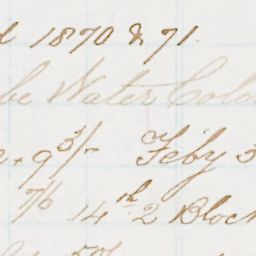 1870 & 71.
be Water Colo
+ 9 3/- Feby 3
7/6 14th 2 Block